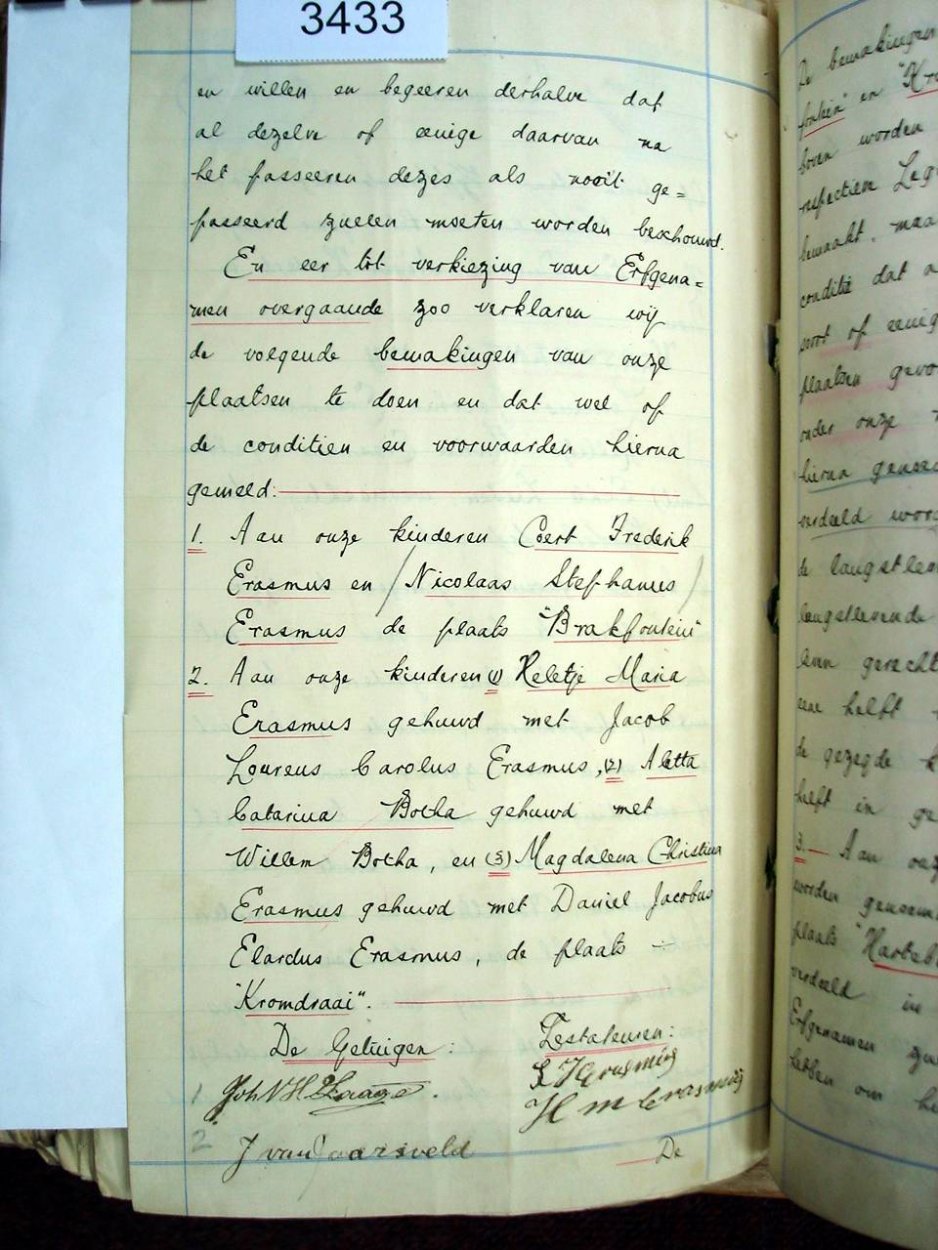 3433
en willen en begeeren derhalve dat
al dezelve of eenige daarvan na
het passeeren dezes als nooit ge=
passeerd zullen moeten worden beschouwd.
En eer tot verkiezing van Erfgena=
men overgaande zoo verklaren wij
de volgende bemakingen van onze
plaatsen te doen en dat wel of
de conditien en voorwaarden hierna
gemeld:
1. Aan onze kinderen Coert Frederik
Erasmus en (Nicolaas Stephanus)
Erasmus de plaats "Brakfontein"
2. Aan onze kinderen (1) Heletje Maria
Erasmus gehuwd met Jacob
Lourens Carolus Erasmus, (2) Aletta
Catarina Botha gehuwd met
Willem Botha, en (3) Magdalena Christina
Erasmus gehuwd met Daniel Jacobus
Elardus Erasmus, de plaats
"Kromdraai".
De Getuigen: Testateuren:
1
H M Erasmus
2 J van Aarsveld
De
De bemakingen
fontein" en "Kro
boven worden
respectieve Leg
bemaakt, maa
conditie dat
soort of eenig
plaatsen gevo
onder onze
hierna genoe
verdeeld word
de langstlev
langstlevende
leen gerecht
eene helft
de gezegde k
helft in ge
3. Aan onz
worden genoem
plaats "Hartebe
verdeeld in
Erfgenamen zu
hebben om